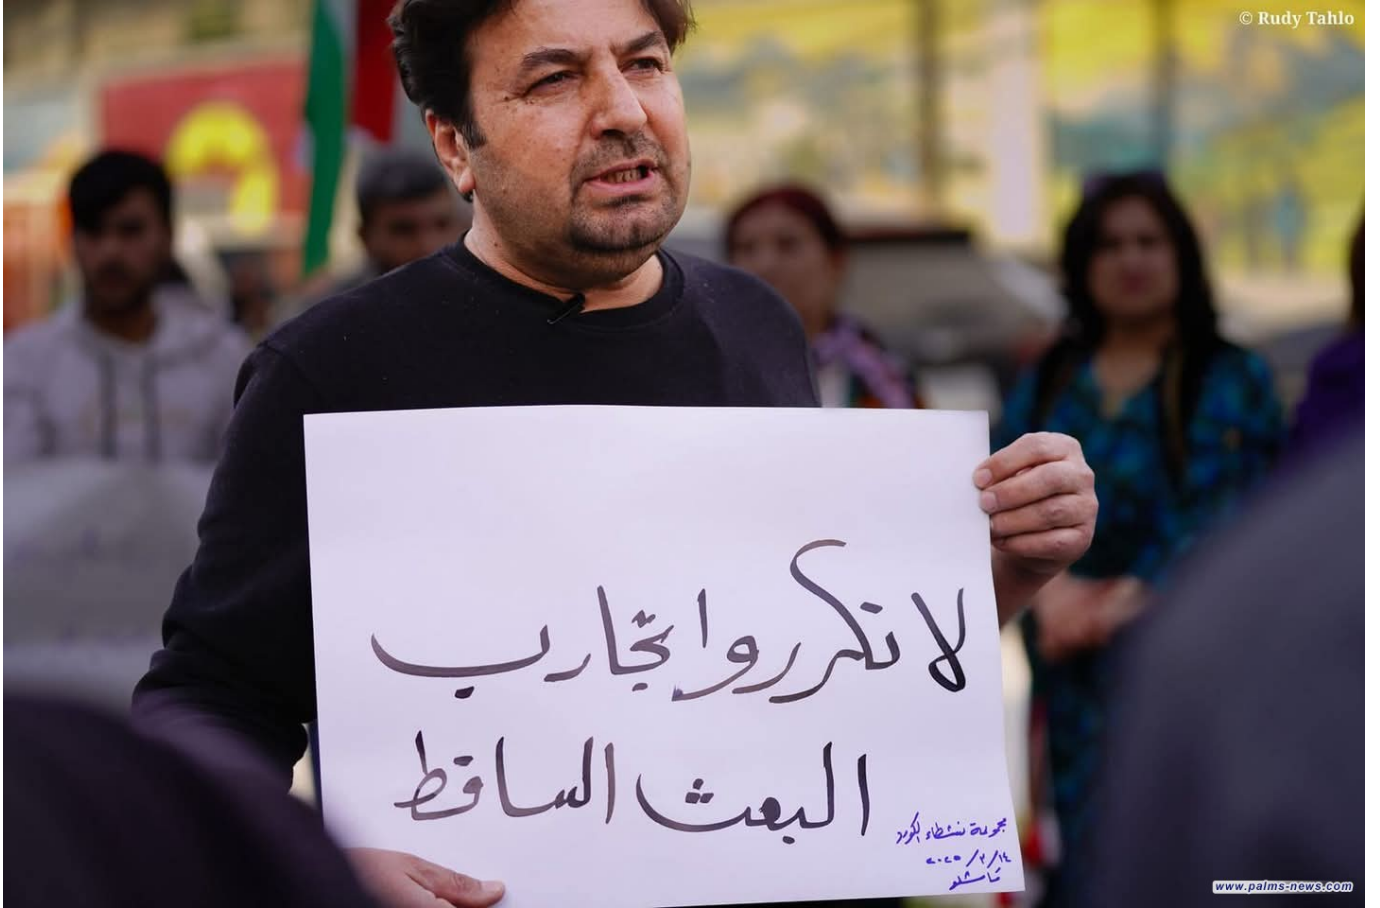 © Rudy Tahlo
لا تكرروا تجارب
البعث الساقط
مجموعة نشطاء الكورد
٢٠٢٥/٣/١٤
قامشلو
www.palms-news.com